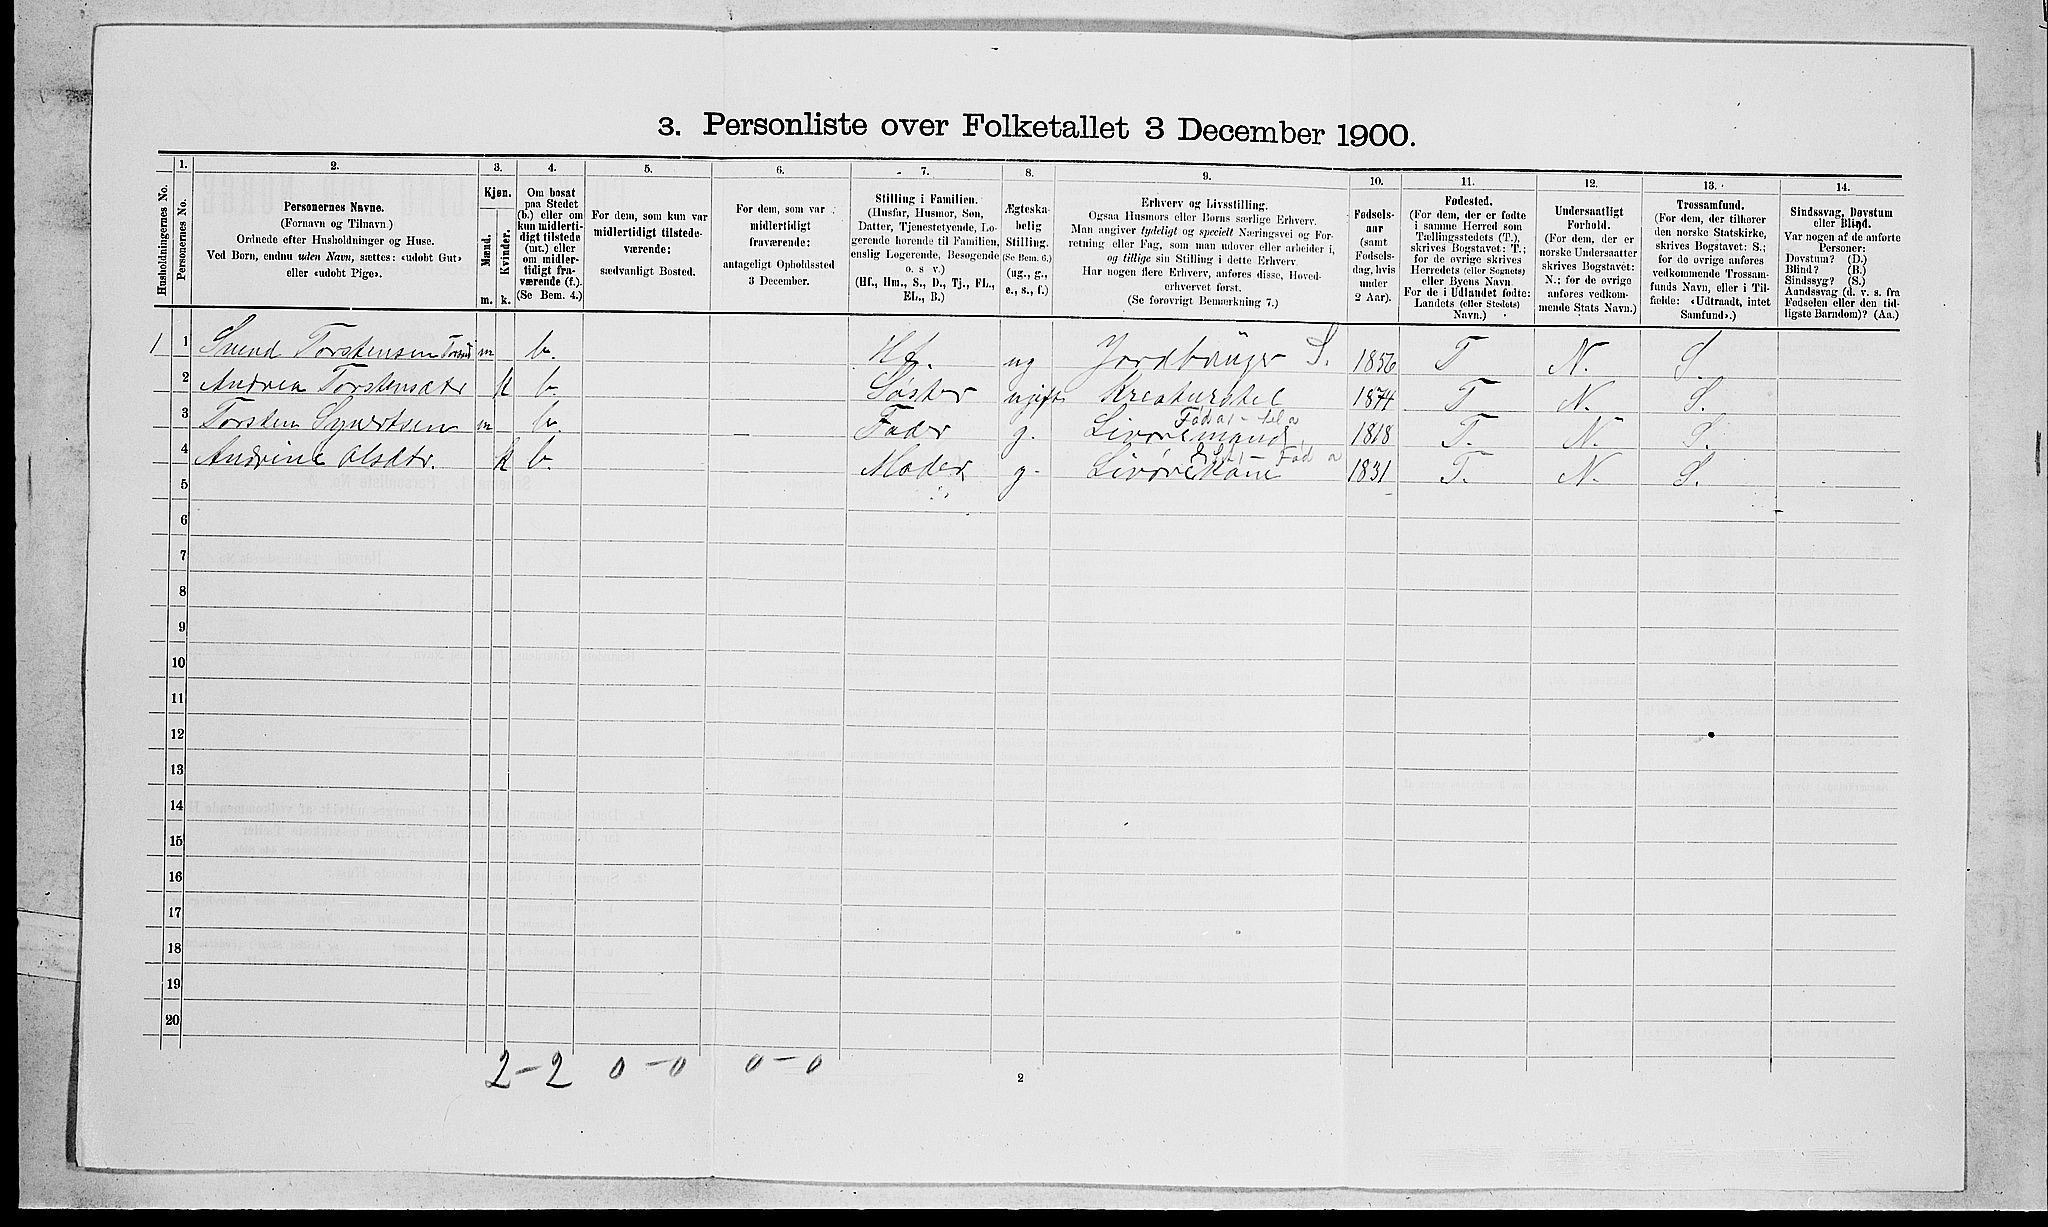 3. Personliste over Folketallet 3 December 1900.
Husholdningernes No.
1.
Personernes No.
2.
Personernes Navne.
(Fornavn og Tilnavn)
Ordnede efter Husholdninger og Huse.
Ved Børn, endnu uden Navn, sættes: «udøbt Gut»
eller «udøbt Pige».
3.
Kjøn.
Mænd.
Kvinder.
m.
k.
4.
Om bosat
paa Stedet
(b.) eller om
kun midlerti-
digt tilstede
(mt.) eller
om midler-
tidigt fra-
værende (f.).
(Se Bem. 4.)
5.
For dem, som kun var
midlertidigt tilstede-
værende:
sædvanligt Bosted.
6.
For dem, som var
midlertidigt
fraværende:
antageligt Opholdssted
3 December.
7.
Stilling i Familien.
(Husfar, Husmor, Søn,
Datter, Tjenestetyende, Lo-
gerende hørende til Familien,
enslig Logerende, Besøgende
o. s v.)
(Hf., Hm., S., D., Tj., FL.,
EL., B.)
8.
Ægteska-
belig
Stilling.
(Se Bem. 6.)
(ug., g.,
e., s., f.)
9.
Erhverv og Livsstilling.
Ogsaa Husmors eller Børns særlige Erhverv.
Man angiver tydeligt og specielt Næringsvei og For-
retning eller Fag, som man udøver eller arbeider i,
og tillige sin Stilling i dette Erhverv.
Har nogen flere Erhverv, anføres disse, Hoved-
erhvervet først.
(Se forøvrigt Bemerkning 7.)
10.
Fødsels-
aar
(samt
Fødsels-
dag, hvis
under
2 Aar).
11.
Fødested.
(For dem, der er fødte
i samme Herred som
Tællingsstedets (T.),
skrives Bogstavet: T.;
for de øvrige skrives
Herredets (eller Sognets)
eller Byens Navn.
For de i Udlandet fødte:
Landets (eller Stedets)
Navn.)
12.
Undersaatligt
Forhold.
(For dem, der er
norske Undersaatter
skrives Bogstavet:
N.; for de øvrige
anføres vedkom-
mende Stats Navn.)
13.
Trossamfund.
(For dem, der tilhører
den norske Statskirke,
skrives Bogstavet: S.;
for de øvrige anføres
vedkommende Trossam-
funds Navn, eller i Til-
fælde: «Udtraadt, intet
Samfund».)
14.
Sindssvag, Døvstum
eller Blind.
Var nogen af de anførte
Personer:
Døvstum? (D.)
Blind? (B.)
Sindssyg? (S.)
Aandssvag (d. v. s. fra
Fødselen eller den tid-
ligste Barndom)? (Aa.)
1 1 Svend Torstensen m b. Hf. ug Jordbruger S. 1856 T N. S.
2 Andrea Torstensdtr k b. Søster ugift Kreaturstel 1874 T N. S.
Føda
3 Torsten Syvertsen m b. Fader g. Livøremand 1818 T. N. S.
Føda
4 Andrine Olsdtr. k b. Moder g. Livørekone 1831 T. N. S.
5
6
7
8
9
10
11
12
13
14
15
16
17
18
19
20
2 - 2 0 - 0 0 - 0
2